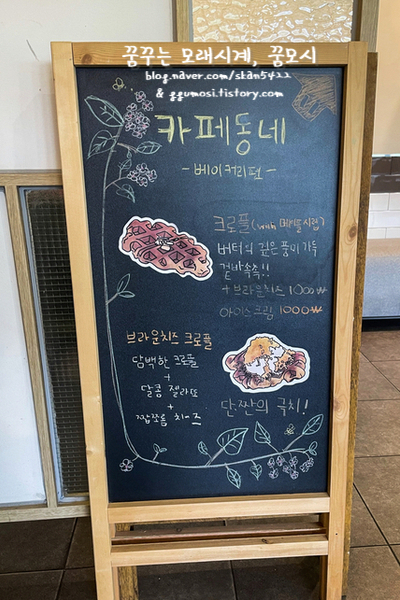 꿈꾸는 모래시계, 꿈모시
blog.naver.com/skan5422
& ggumosi.tistory.com
카페동네
- 베이커리편 -
크로플 (with 메이플시럽)
버터의 깊은 풍미 가득
겉바속촉!!
+ 브라운치즈 1000₩
아이스크림 1000₩
브라운치즈 크로플
담백한 크로플
+
달콤 젤라또
+
짭쪼름 치-즈
단짠의 극치!